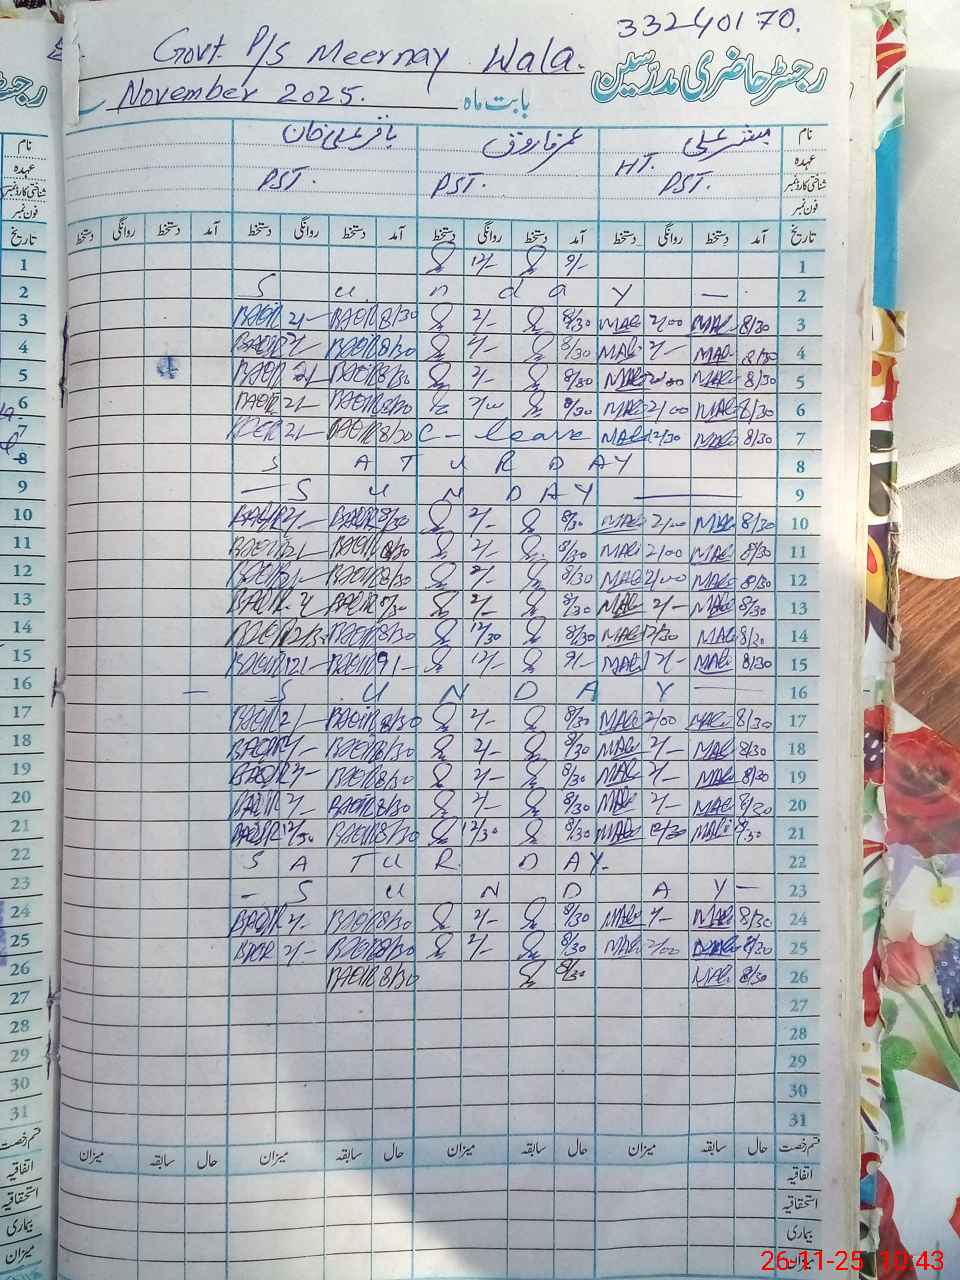 33240170.
Govt. P/S Meernay Wala.
رجسٹر حاضری مدرسین
November 2025. بابت ماہ
نام مبشر علی عمر فاروق باقر علی خان
عہدہ HT. PST. PST. PST.
شناختی کارڈ نمبر
فون نمبر
تاریخ آمد دستخط روانگی دستخط آمد دستخط روانگی دستخط آمد دستخط روانگی دستخط آمد دستخط روانگی دستخط
1 9/- 12/-
2 Sunday —
3 8/30 MAli 2/00 MAli 8/30 2/- BAQIR 8/30 BAQIR 2/-
4 8/30 MAli 2/- MAli 8/30 2/- BAQIR 8/30 BAQIR 2/-
5 8/30 MAli 2/00 MAli 8/30 2/- BAQIR 8/30 BAQIR 2/-
6 8/30 MAli 2/00 MAli 8/30 2/00 BAQIR 8/30 BAQIR 2/-
7 8/30 MAli 12/30 MAli C- leave BAQIR 8/30 BAQIR 2/-
8 SATURDAY
9 — SUNDAY —
10 8/30 MAli 2/00 MAli 8/30 2/- BAQIR 8/30 BAQIR 2/-
11 8/30 MAli 2/00 MAli 8/30 2/- BAQIR 8/30 BAQIR 2/-
12 8/30 MAli 2/00 MAli 8/30 2/- BAQIR 8/30 BAQIR 2/-
13 8/30 MAli 2/- MAli 8/30 2/- BAQIR 8/30 BAQIR 2/-
14 8/30 MAli 12/30 MAli 8/30 12/30 BAQIR 8/30 BAQIR 12/30
15 8/30 MAli 12/- MAli 9/- 12/- BAQIR 9/- BAQIR 12/-
16 — SUNDAY —
17 8/30 MAli 2/00 MAli 8/30 2/- BAQIR 8/30 BAQIR 2/-
18 8/30 MAli 2/- MAli 8/30 2/- BAQIR 8/30 BAQIR 2/-
19 8/30 MAli 2/- MAli 8/30 2/- BAQIR 8/30 BAQIR 2/-
20 8/30 MAli 2/- MAli 8/30 2/- BAQIR 8/30 BAQIR 2/-
21 8/30 MAli 12/30 MAli 8/30 12/30 BAQIR 8/30 BAQIR 12/30
22 SATURDAY.
23 — SUNDAY —
24 8/30 MAli 2/- MAli 8/30 2/- BAQIR 8/30 BAQIR 2/-
25 8/30 MAli 2/00 MAli 8/30 2/- BAQIR 8/30 BAQIR 2/-
26 8/30 MAli 8/30 BAQIR 8/30
27
28
29
30
31
قسم رخصت حال سابقہ میزان حال سابقہ میزان حال سابقہ میزان حال سابقہ میزان
اتفاقیہ
استحقاقیہ
بیماری
میزان
26-11-25 10:43